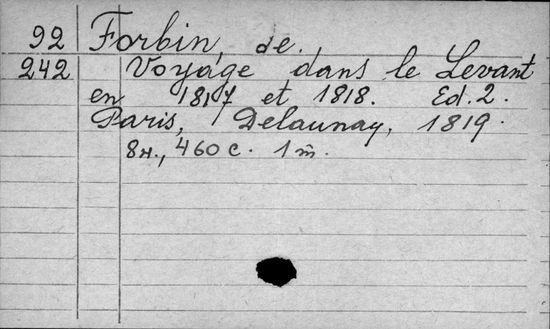 92 Forbin, de.
242 Voyage dans le Levant
en 1817 et 1818. Ed. 2.
Paris, Delaunay, 1819.
8н., 460 с. 1 m̄.